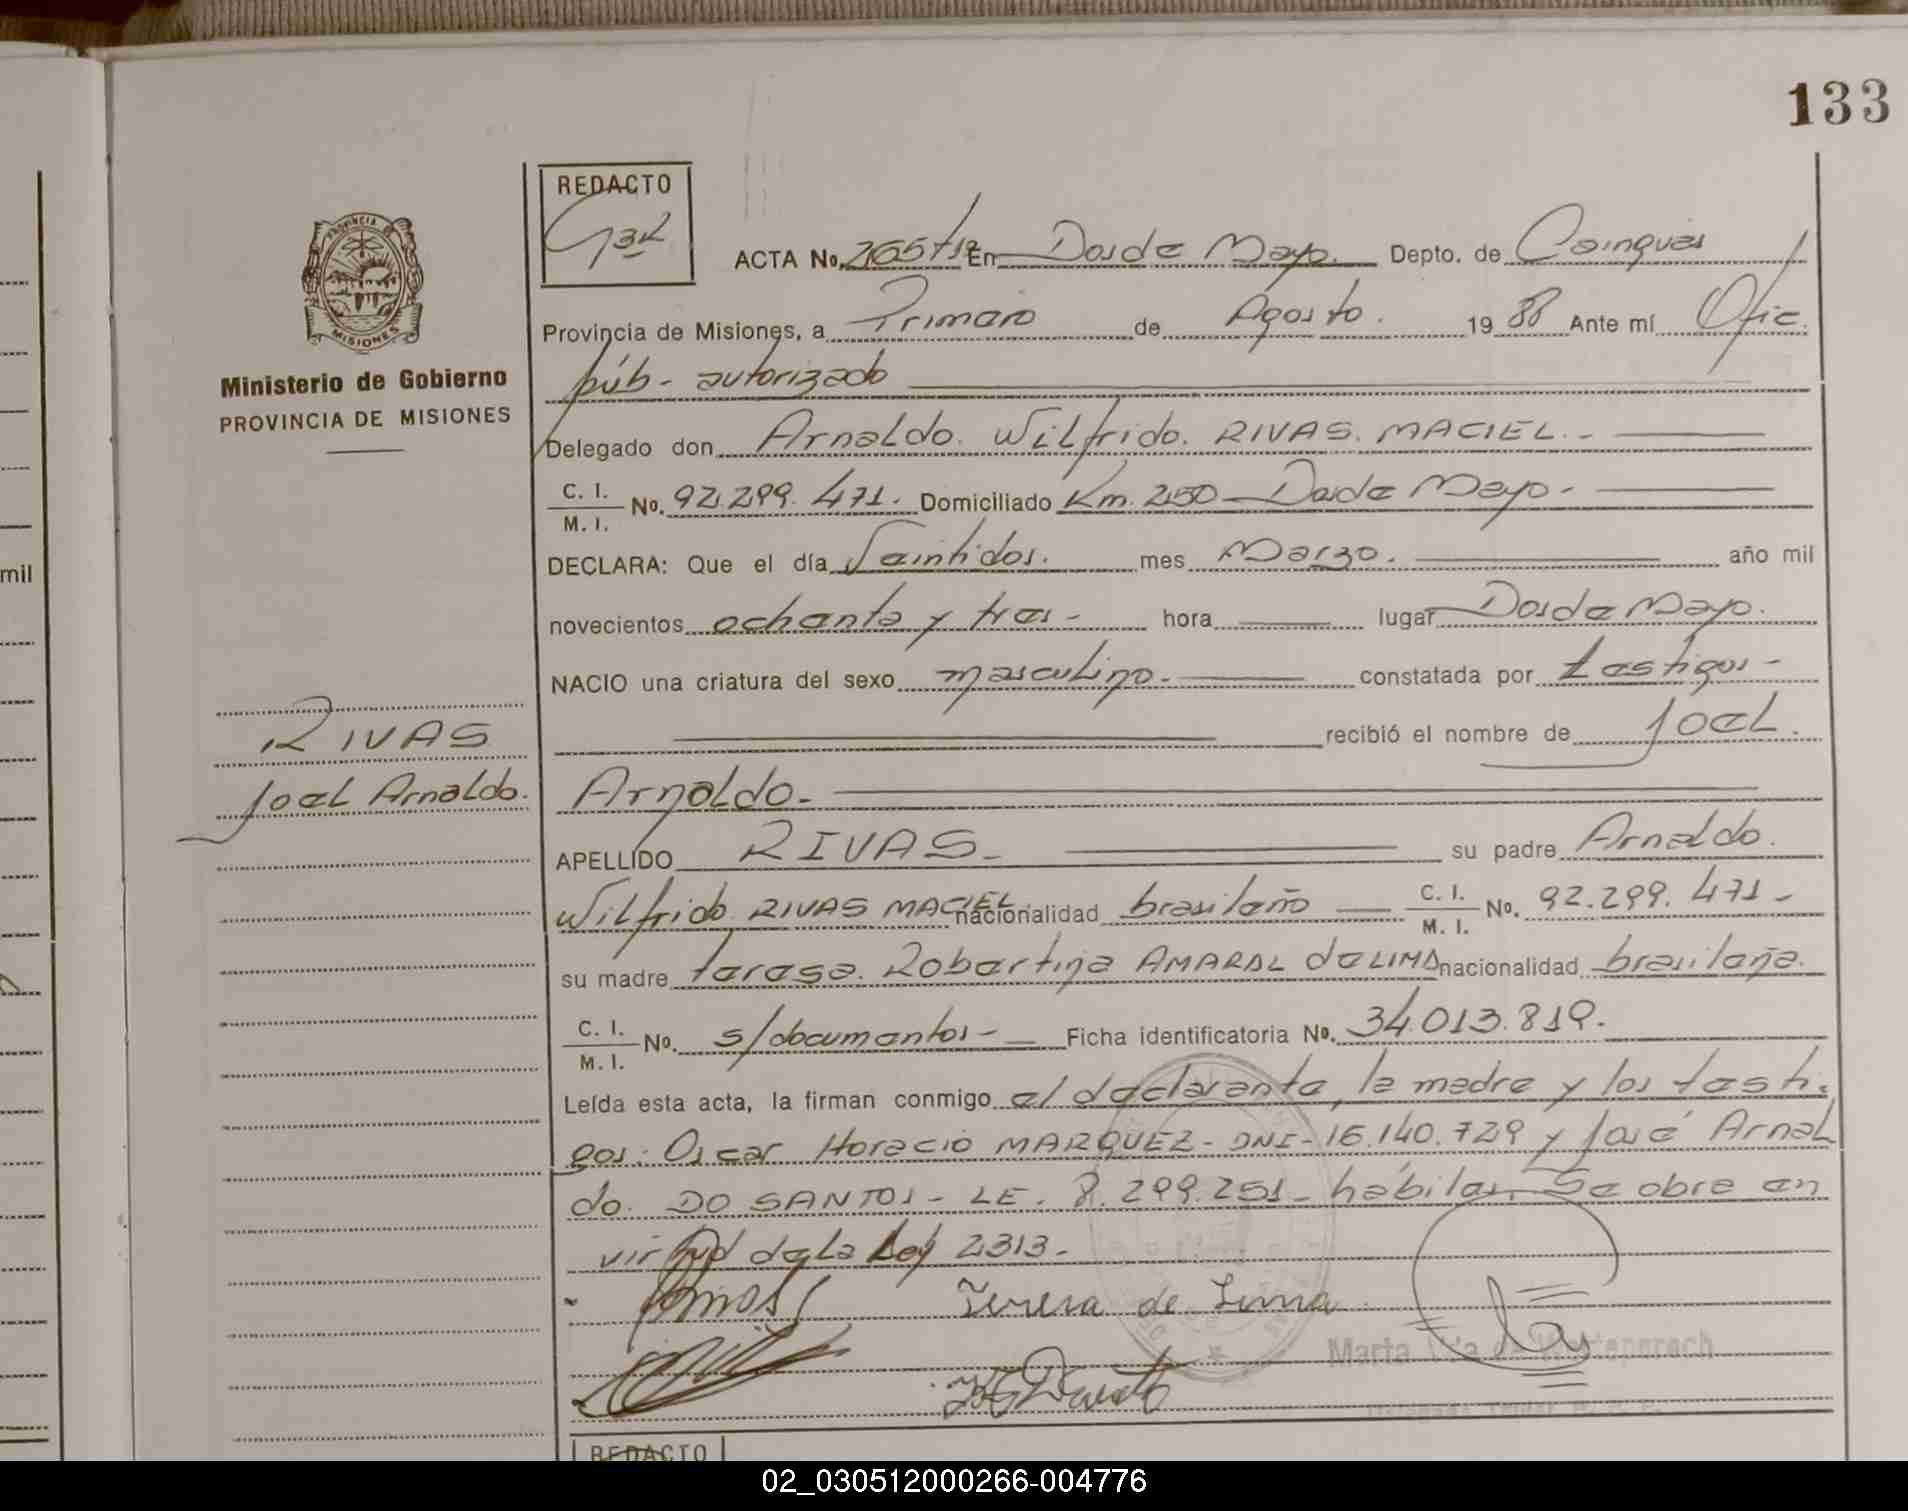 133
REDACTO
ACTA No. 265 En Dos de Mayo. Depto. de Cainguas
Provincia de Misiones, a Primero de Agosto. 19 88 Ante mí Ofic.
púb- autorizado
Ministerio de Gobierno
PROVINCIA DE MISIONES
Delegado don Arnaldo. Wilfrido. RIVAS. MACIEL.-
C. I.
M. I. No. 92.299.471. Domiciliado Km. 250 - Dos de Mayo-
DECLARA: Que el día Veintidos. mes Marzo. año mil
mil
novecientos ochenta y tres- hora lugar Dos de Mayo.
NACIO una criatura del sexo masculino.- constatada por testigos-
recibió el nombre de Joel.
RIVAS
Joel Arnaldo.
Arnaldo.-
APELLIDO RIVAS- su padre Arnaldo.
Wilfrido RIVAS MACIEL nacionalidad brasileño C. I.
M. I. No. 92.299.471-
su madre Teresa. Robertina AMARAL de LIMA nacionalidad brasileña.
C. I.
M. I. No. s/documentos- Ficha identificatoria No. 34.013.819.
Leída esta acta, la firman conmigo el declarante, la madre y los testi-
gos: Oscar Horacio MARQUEZ- DNI-16.140.729 y José Arnal
do. DO SANTOS- LE. 8.299.251- hábiles. Se obre en
virtud de la Ley 2313-
Teresa de Lima
Marta
REDACTO
02_030512000266-004776